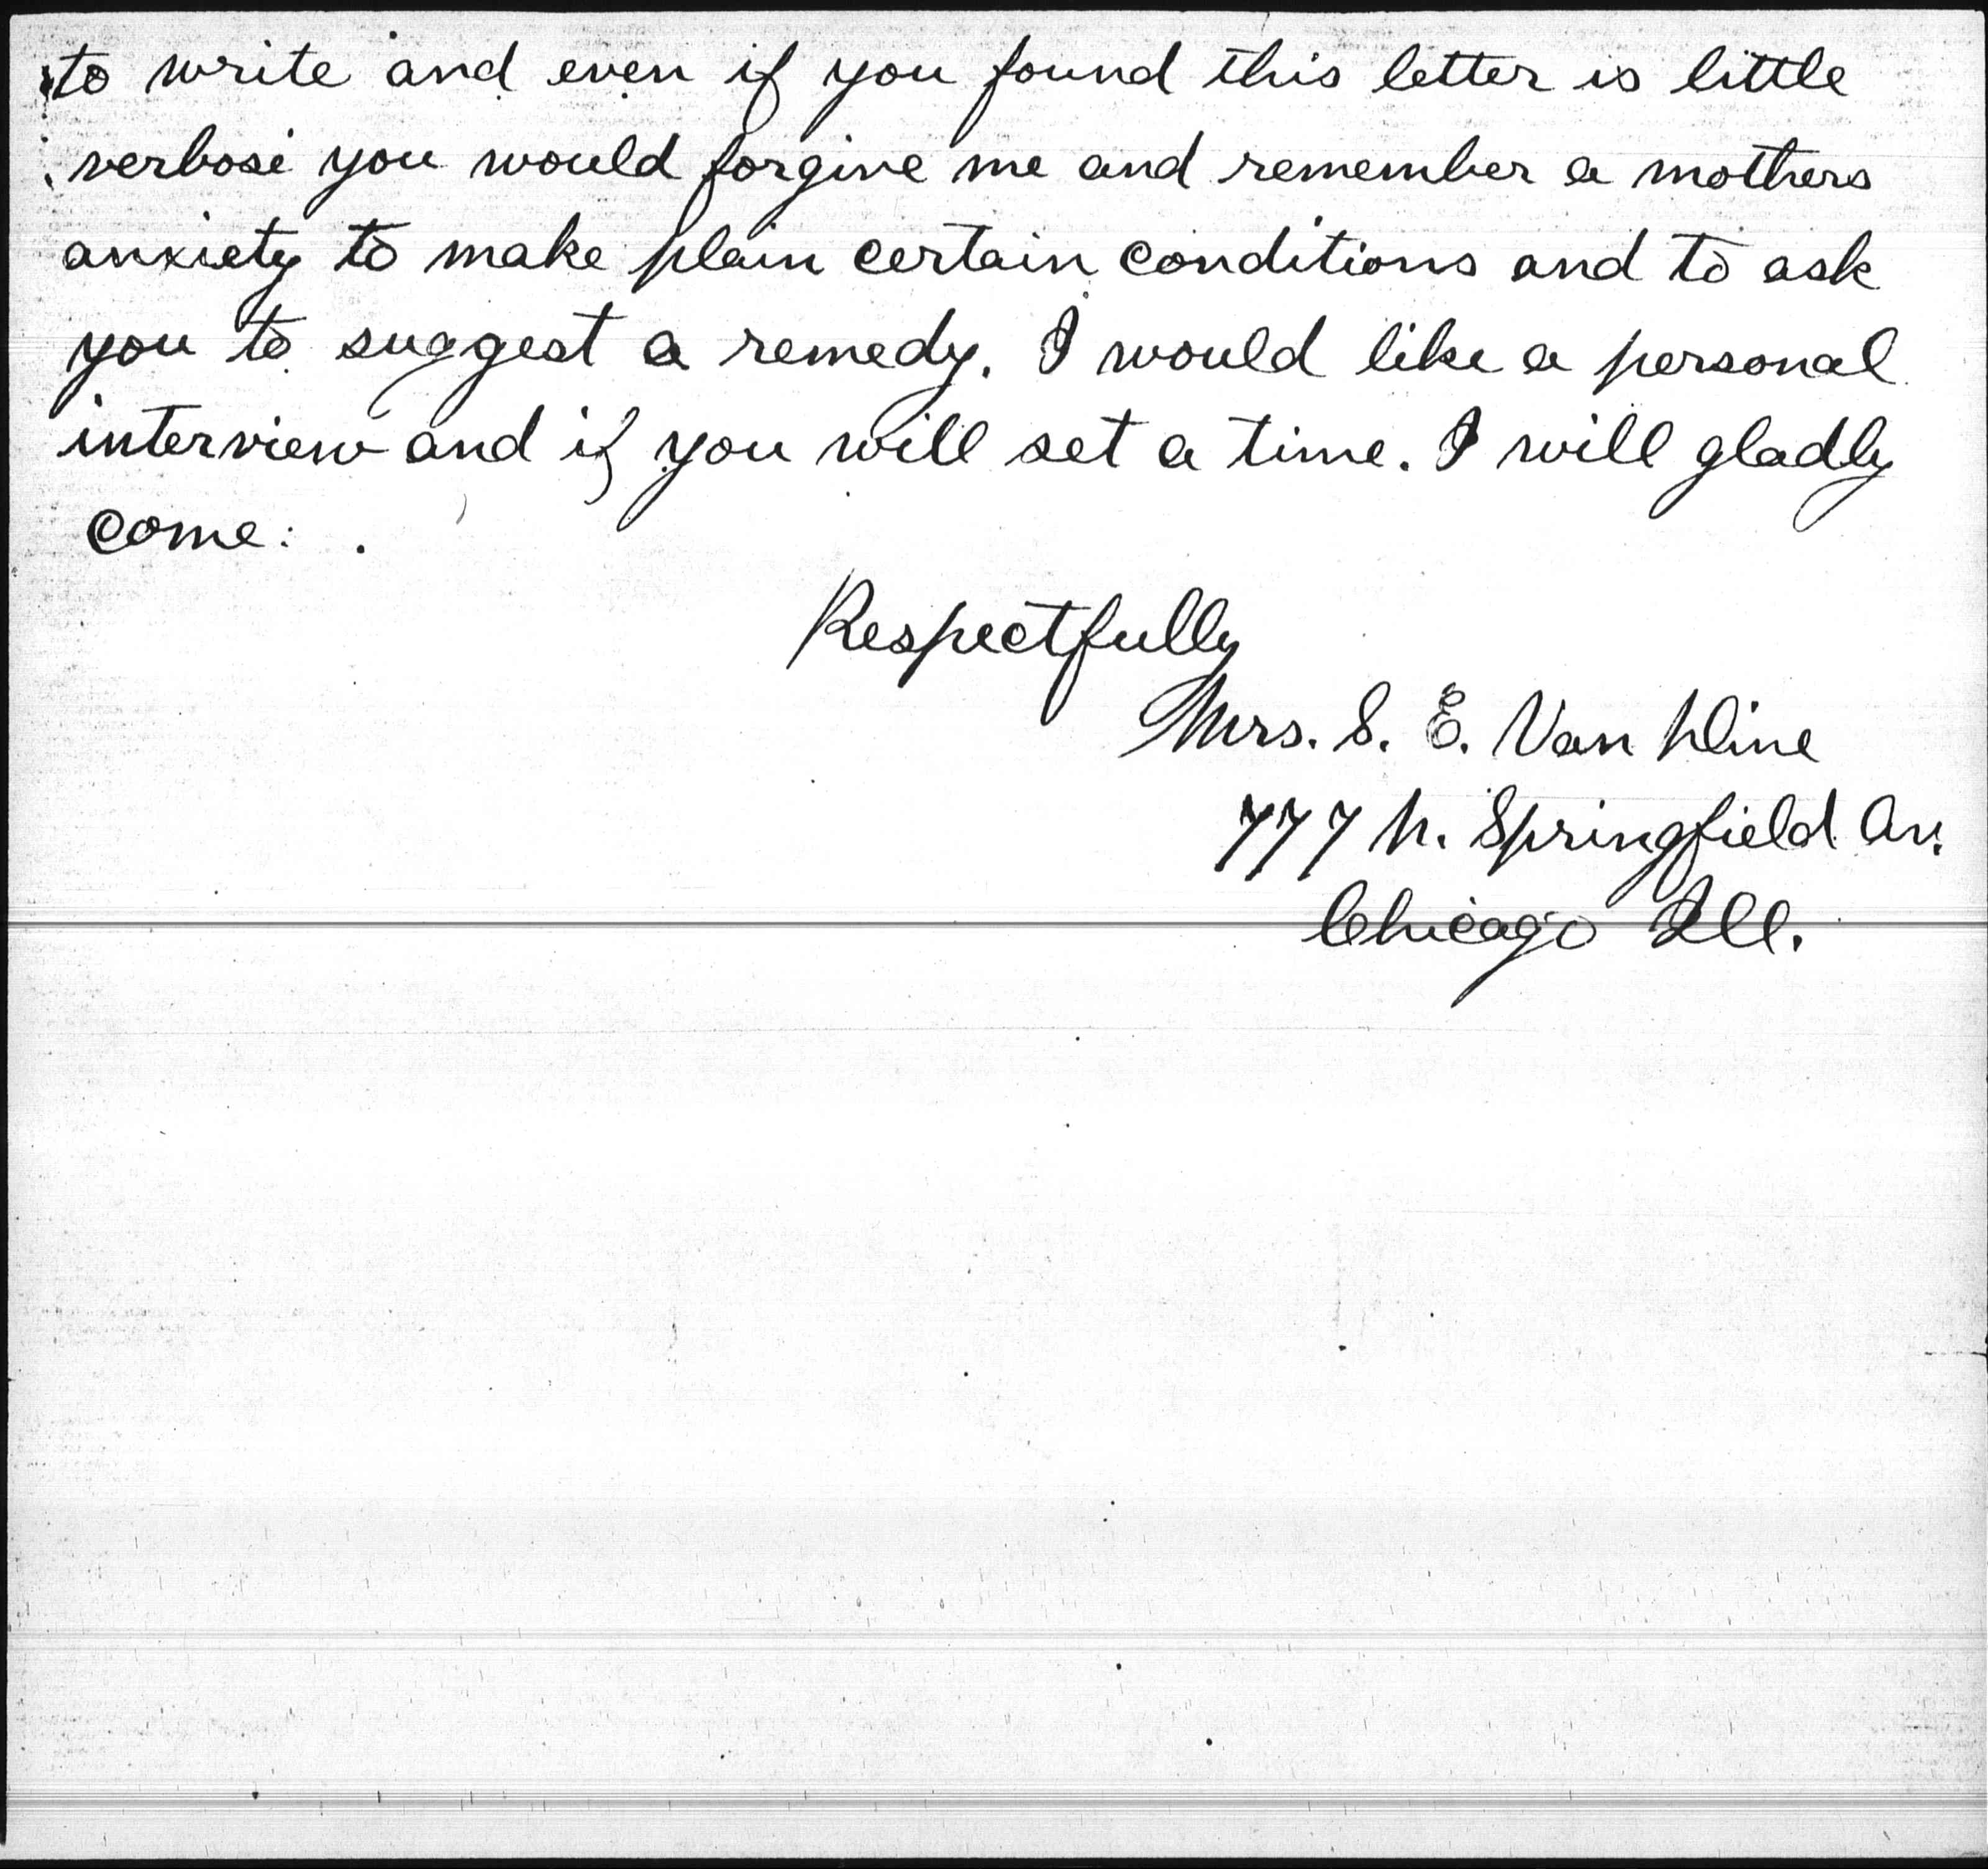 to write and even if you found this letter is little
verbose you would forgive me and remember a mothers
anxiety to make plain certain conditions and to ask
you to suggest a remedy. I would like a personal
interview and if you will set a time. I will gladly
come:
Respectfully
Mrs. S. E. Van Dine
777 N. Springfield Av.
Chicago Ill.